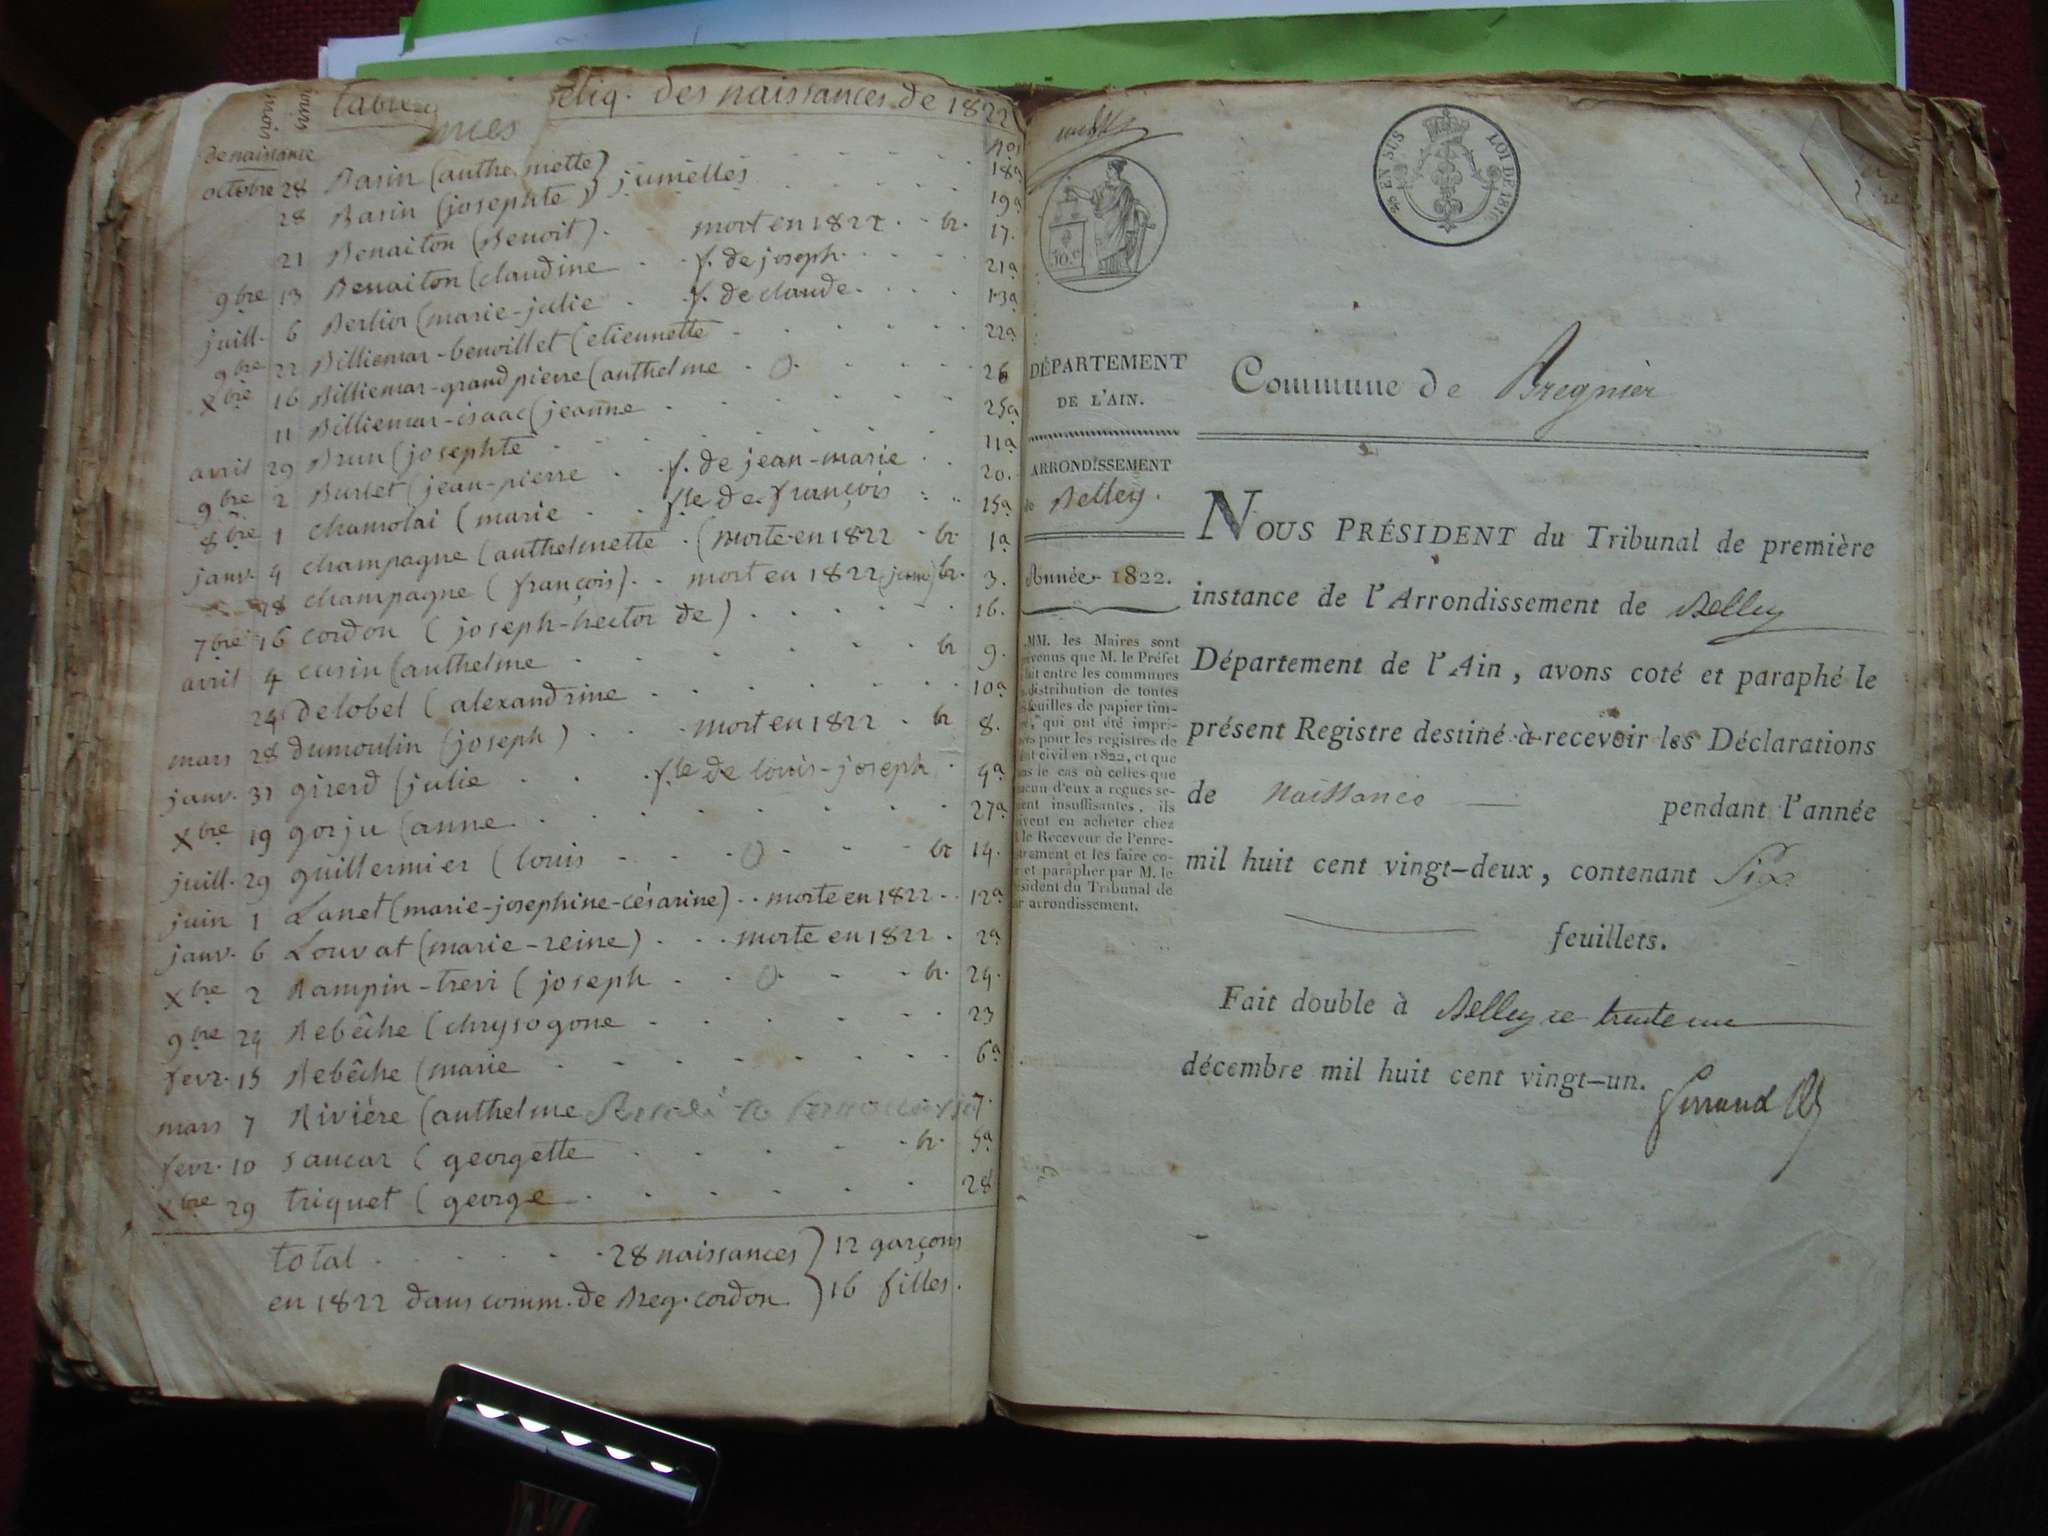 des naissances de 1822
mois
jours
de naissance
octobre 28 Basin (anthelmette) 18a
28 Basin (josephte) jumelles 19a
21 Benaiton (Benoit) . mort en 1822 . br. 17.
9bre 13 Benaiton (claudine . f. de joseph . 21a
juill. 6 Berlior (marie-julie . f. de claude . 13a
9bre 22 Billiemar-benoillet (etiennette . 22a
Xbre 16 Billiemar-grandpierre (anthelme . 26
11 Billiemar-isaac (jeanne . 25a
avril 29 Brun (josephte . 11a
9bre 2 Burlet (jean-pierre . f. de jean-marie . 20.
8bre 1 chamolai (marie . fle de françois . 15a
janv. 4 champagne (anthelmette . (morte en 1822 - br 1a
18 champagne (françois) . mort en 1822 br. 3.
7bre 16 cordon (joseph-hector de) . 16.
avril 4 cusin (anthelme . br 9.
24 Delobel (alexandrine . 10a
mars 28 dumoulin (joseph) . mort en 1822 . br 8.
janv. 31 girerd (julie . fle de louis-joseph . 4a
Xbre 19 gorju (anne . 27a
juill. 29 guillermier (louis . br 14.
juin 1 Lanet (marie-josephine-césarine) . . morte en 1822 . . 12a
janv. 6 Louvat (marie-reine) . . . morte en 1822 . 2a
Xbre 2 Rampin-trevi (joseph . br. 24.
9bre 24 Rebêche (chrysogone . 23
fevr. 15 Rebêche (marie . 6a
mars 7 Rivière (anthelme 7.
fevr. 10 saucar (georgette . br. 5a
Xbre 29 triquet (george . 28
total . 28 naissances } 12 garçons
en 1822 dans comm. de Breg. cordon } 16 filles.
EN SUS LOI DE 1816
DÉPARTEMENT
DE L'AIN.
Commune de Bregnier
ARRONDISSEMENT
de Belley.
Année 1822.
MM. les Maires sont
prévenus que M. le Préfet
fait entre les communes
distribution de toutes
feuilles de papier tim-
bré, qui ont été impri-
mées pour les registres de
l'état civil en 1822, et que
dans le cas où celles que
chacun d'eux a reçues se-
raient insuffisantes, ils
doivent en acheter chez
le Receveur de l'enre-
gistrement et les faire co-
ter et parapher par M. le
Président du Tribunal de
leur arrondissement.
NOUS PRÉSIDENT du Tribunal de première
instance de l'Arrondissement de Belley
Département de l'Ain, avons coté et paraphé le
présent Registre destiné à recevoir les Déclarations
de Naissance pendant l'année
mil huit cent vingt-deux, contenant Six
feuillets.
Fait double à Belley ce trente un
décembre mil huit cent vingt-un.